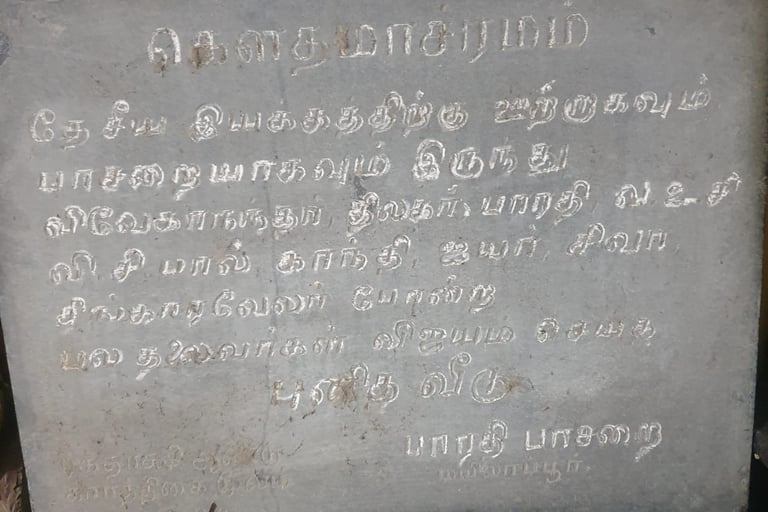 கௌதமாசரமம்
தேசீய இயககததிற்கு ஊற்றுகவும்
பாசறையாகவும் இருந்து
விவேகாநந்தர், திலகர், பாரதி, வ.உ.சி
வி.சி.பால் காந்தி, ஜயர், சிவா,
சிங்காரவேலர் போன்ற
பல தலைவர்கள் விஜயம் செயத
புனித வீடு
பாரதி பாசறை
மயிலாப்பூர்.
கார்த்திகை